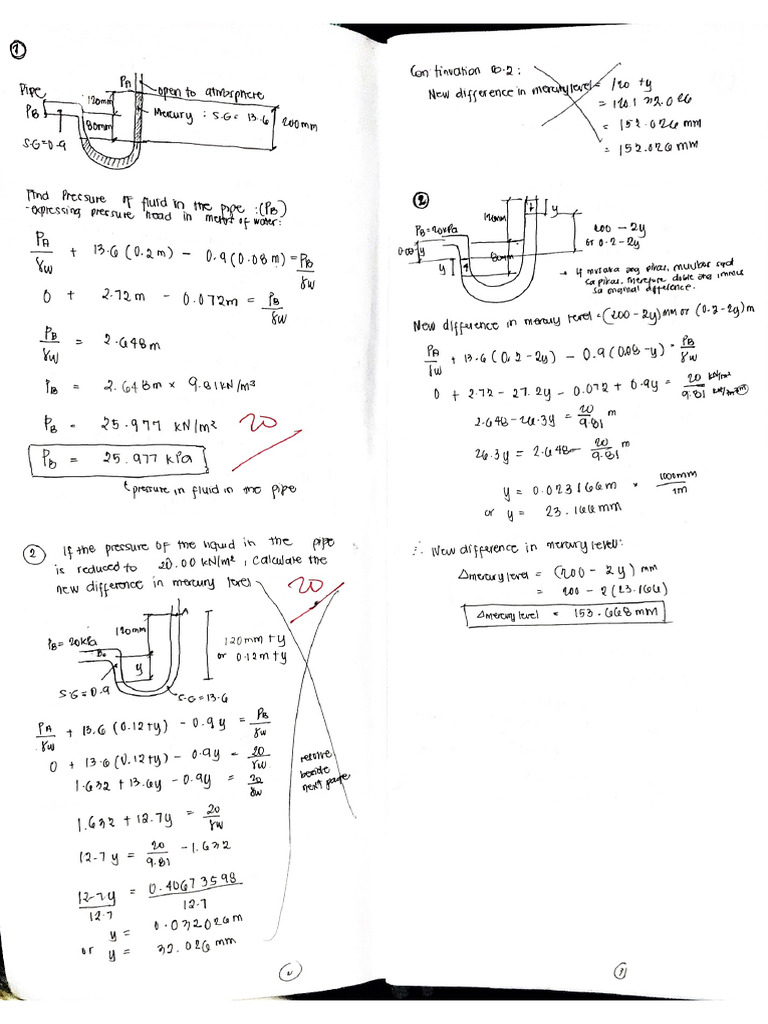 ①
PA
open to atmosphere
Pipe
120mm
PB
Mercury : S.G = 13.6
200mm
80mm
S.G = 0.9
Find Pressure of fluid in the pipe : (PB)
-expressing pressure head in meter of water:
PA/γw + 13.6 (0.2 m) - 0.9 (0.08 m) = PB/γw
0 + 2.72m - 0.072m = PB/γw
PB/γw = 2.648m
PB = 2.648m × 9.81 kN/m³
PB = 25.977 kN/m² 20
PB = 25.977 kPa
pressure in fluid in the pipe
② If the pressure of the liquid in the pipe
is reduced to 20.00 kN/m², calculate the
new difference in mercury level
20
A
120mm
PB = 20kPa
B
y
120mm + y
or 0.12m + y
S.G = 0.9
S.G = 13.6
PA/γw + 13.6 (0.12+y) - 0.9y = PB/γw
0 + 13.6 (0.12+y) - 0.9y = 20/γw
1.632 + 13.6y - 0.9y = 20/γw
resolve
beside
next page
1.632 + 12.7y = 20/γw
12.7y = 20/9.81 - 1.632
12.7y/12.7 = 0.40673598/12.7
y = 0.032026 m
or y = 32.026 mm
Continuation no.2 :
New difference in mercury level = 120 + y
= 120 + 32.026
= 152.026 mm
= 152.026 mm
②
y
120mm
PB = 20kPa
200 - 2y
or 0.2 - 2y
0.08-y
80mm
y
sa original difference.
New difference in mercury level = (200 - 2y) mm or (0.2 - 2y) m
PA/γw + 13.6 (0.2 - 2y) - 0.9 (0.08 - y) = PB/γw
0 + 2.72 - 27.2y - 0.072 + 0.9y = 20 kN/m² / 9.81 kN/m³
2.648 - 26.3y = 20/9.81 m
26.3y = 2.648 - 20/9.81 m
y = 0.023166 m × 1000mm/1m
or y = 23.166 mm
∴ New difference in mercury level:
Δmercury level = (200 - 2y) mm
= 200 - 2 (23.166)
Δmercury level = 153.668 mm